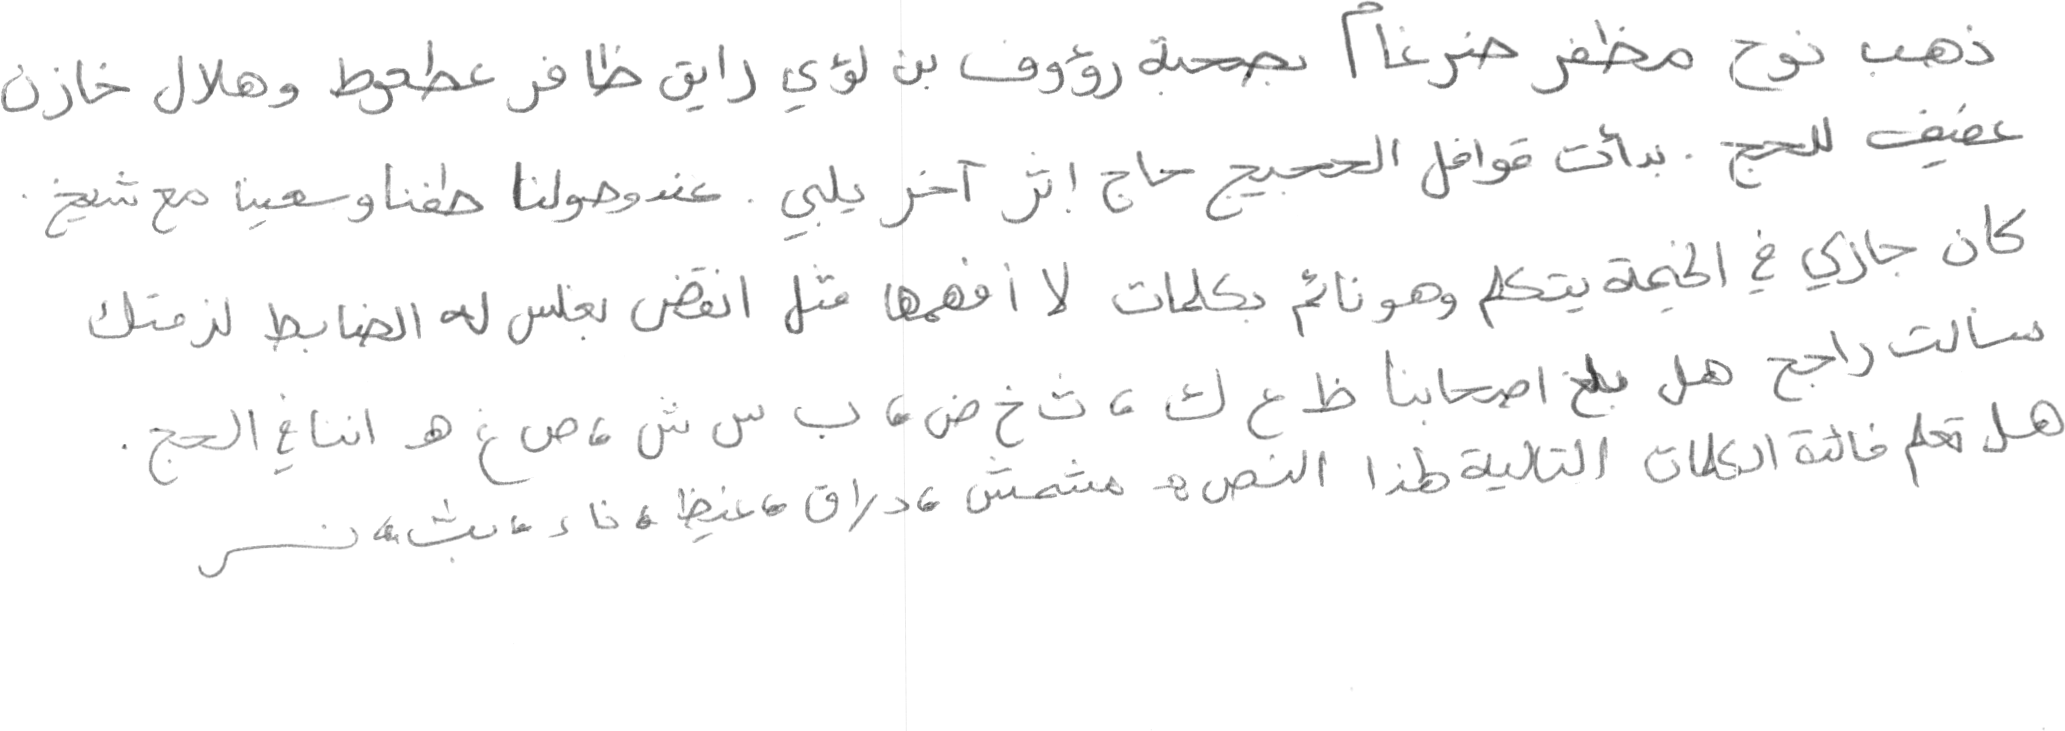 ذهب نوح مظفر ضرغام بصحبة رؤوف بن لؤي رايق ظافر عطعوط وهلال خازن
عفيف للحج . بدأت قوافل الحجيج حاج إثر آخر يلبي . عند وصولنا طفنا وسعينا مع شيخ .
كان جاري في الخيمة يتكلم وهو نائم بكلمات لا أفهمها مثل انقض بغلس له الضابط لزمتك
سألت راجح هل بلغ اصحابنا ظ ع ك ، ث خ ض ، ب س ش ، ص غ هـ اننا في الحج .
هل تعلم فائدة الكلمات التالية لهذا النص هـ مشمش ، دراق ، غيظ ، ناء ، بث ، نسر